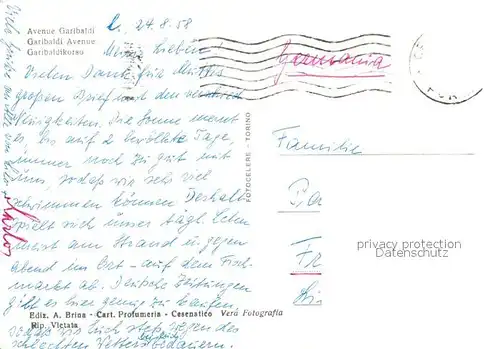 Avenue Garibaldi
Garibaldi Avenue
Garibaldikorso
L. 24.8.58
Meine Lieben!
Vielen Dank für Muttis
großen Brief mit den
Neuigkeiten. Die Sonne meint
es, bis auf 2 bewölkte Tage,
immer noch zu gut mit
uns, sodaß wir sehr viel
schwimmen können. Deshalb
spielt sich unser tägl. Leben
meist am Strand u. gegen
abend im Ort - auf dem Fisch-
markt ab. Deutsche Zeitungen
gibt es hier genug zu kaufen,
sodaß wir Euch stets wegen des
schlechten Wetters bedauern.
Viele Grüße an alle von
Karlos
Ediz. A. Brina - Cart. Profumeria - Cesenatico Vera Fotografia
Rip. Vietata
FOTOCELERE - TORINO
Germania
Familie
Fr
privacy protection
Datenschutz